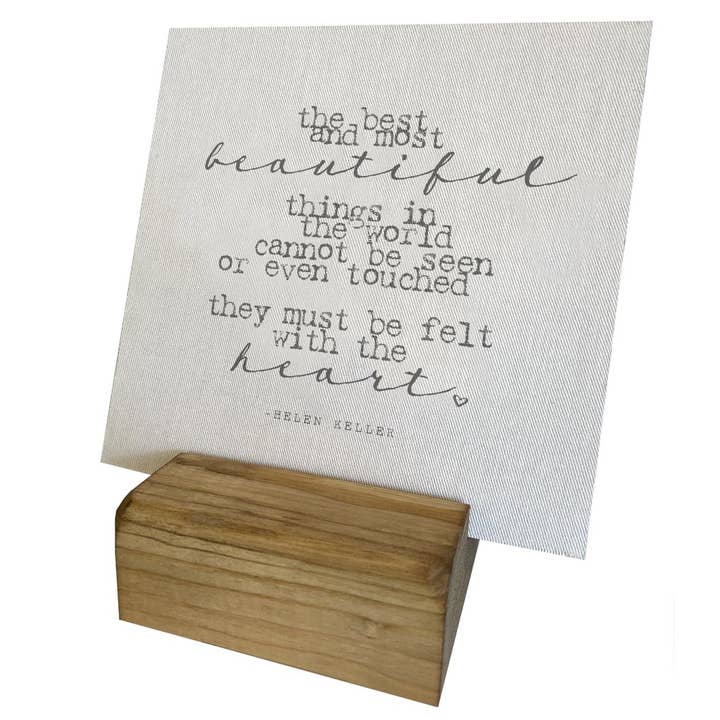 the best
and most
beautiful
things in
the world
cannot be seen
or even touched
they must be felt
with the
heart.
-HELEN KELLER